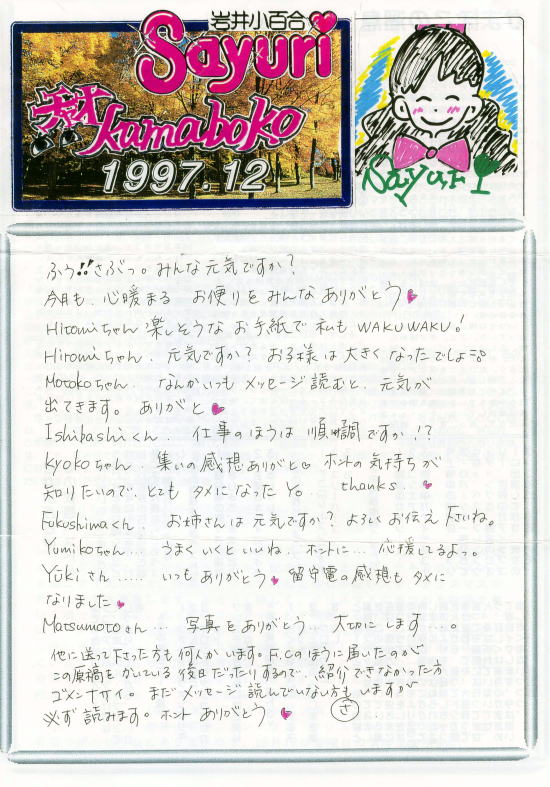 岩井小百合
Sayuri
kamaboko
1997.12
Sayuri
ふぅ!!さぶっ。みんな元気ですか?
今月も、心暖まる お便りをみんなありがとう
Hitomiちゃん 楽しそうな お手紙で 私も WAKUWAKU!
Hiromiちゃん、元気ですか? お子様は大きくなったでしょう。
Motokoちゃん、なんかいつも メッセージ読むと、元気が
出てきます。ありがと
Ishibashiくん、仕事のほうは 順調ですか!?
Kyokoちゃん、集いの感想ありがと♡ ホントの気持ちが
知りたいので、とても タメになったYo. thanks.
Fukushimaくん、お姉さんは 元気ですか? よろしくお伝え下さいね。
Yumikoちゃん… うまくいくといいね、ホントに… 応援してるよっ。
Yūkiさん….. いつもありがとう 留守電の感想も タメに
なりました
Matsumotoさん… 写真をありがとう… 大切にします…。
他に送って下さった方も何人かいます。F.Cのほうに届いたのが
この原稿をかいている後日だったりするので、紹介できなかった方
ゴメンナサイ。まだ メッセージ 読んでいない方もいますが
必ず 読みます。ホント ありがとう
さ